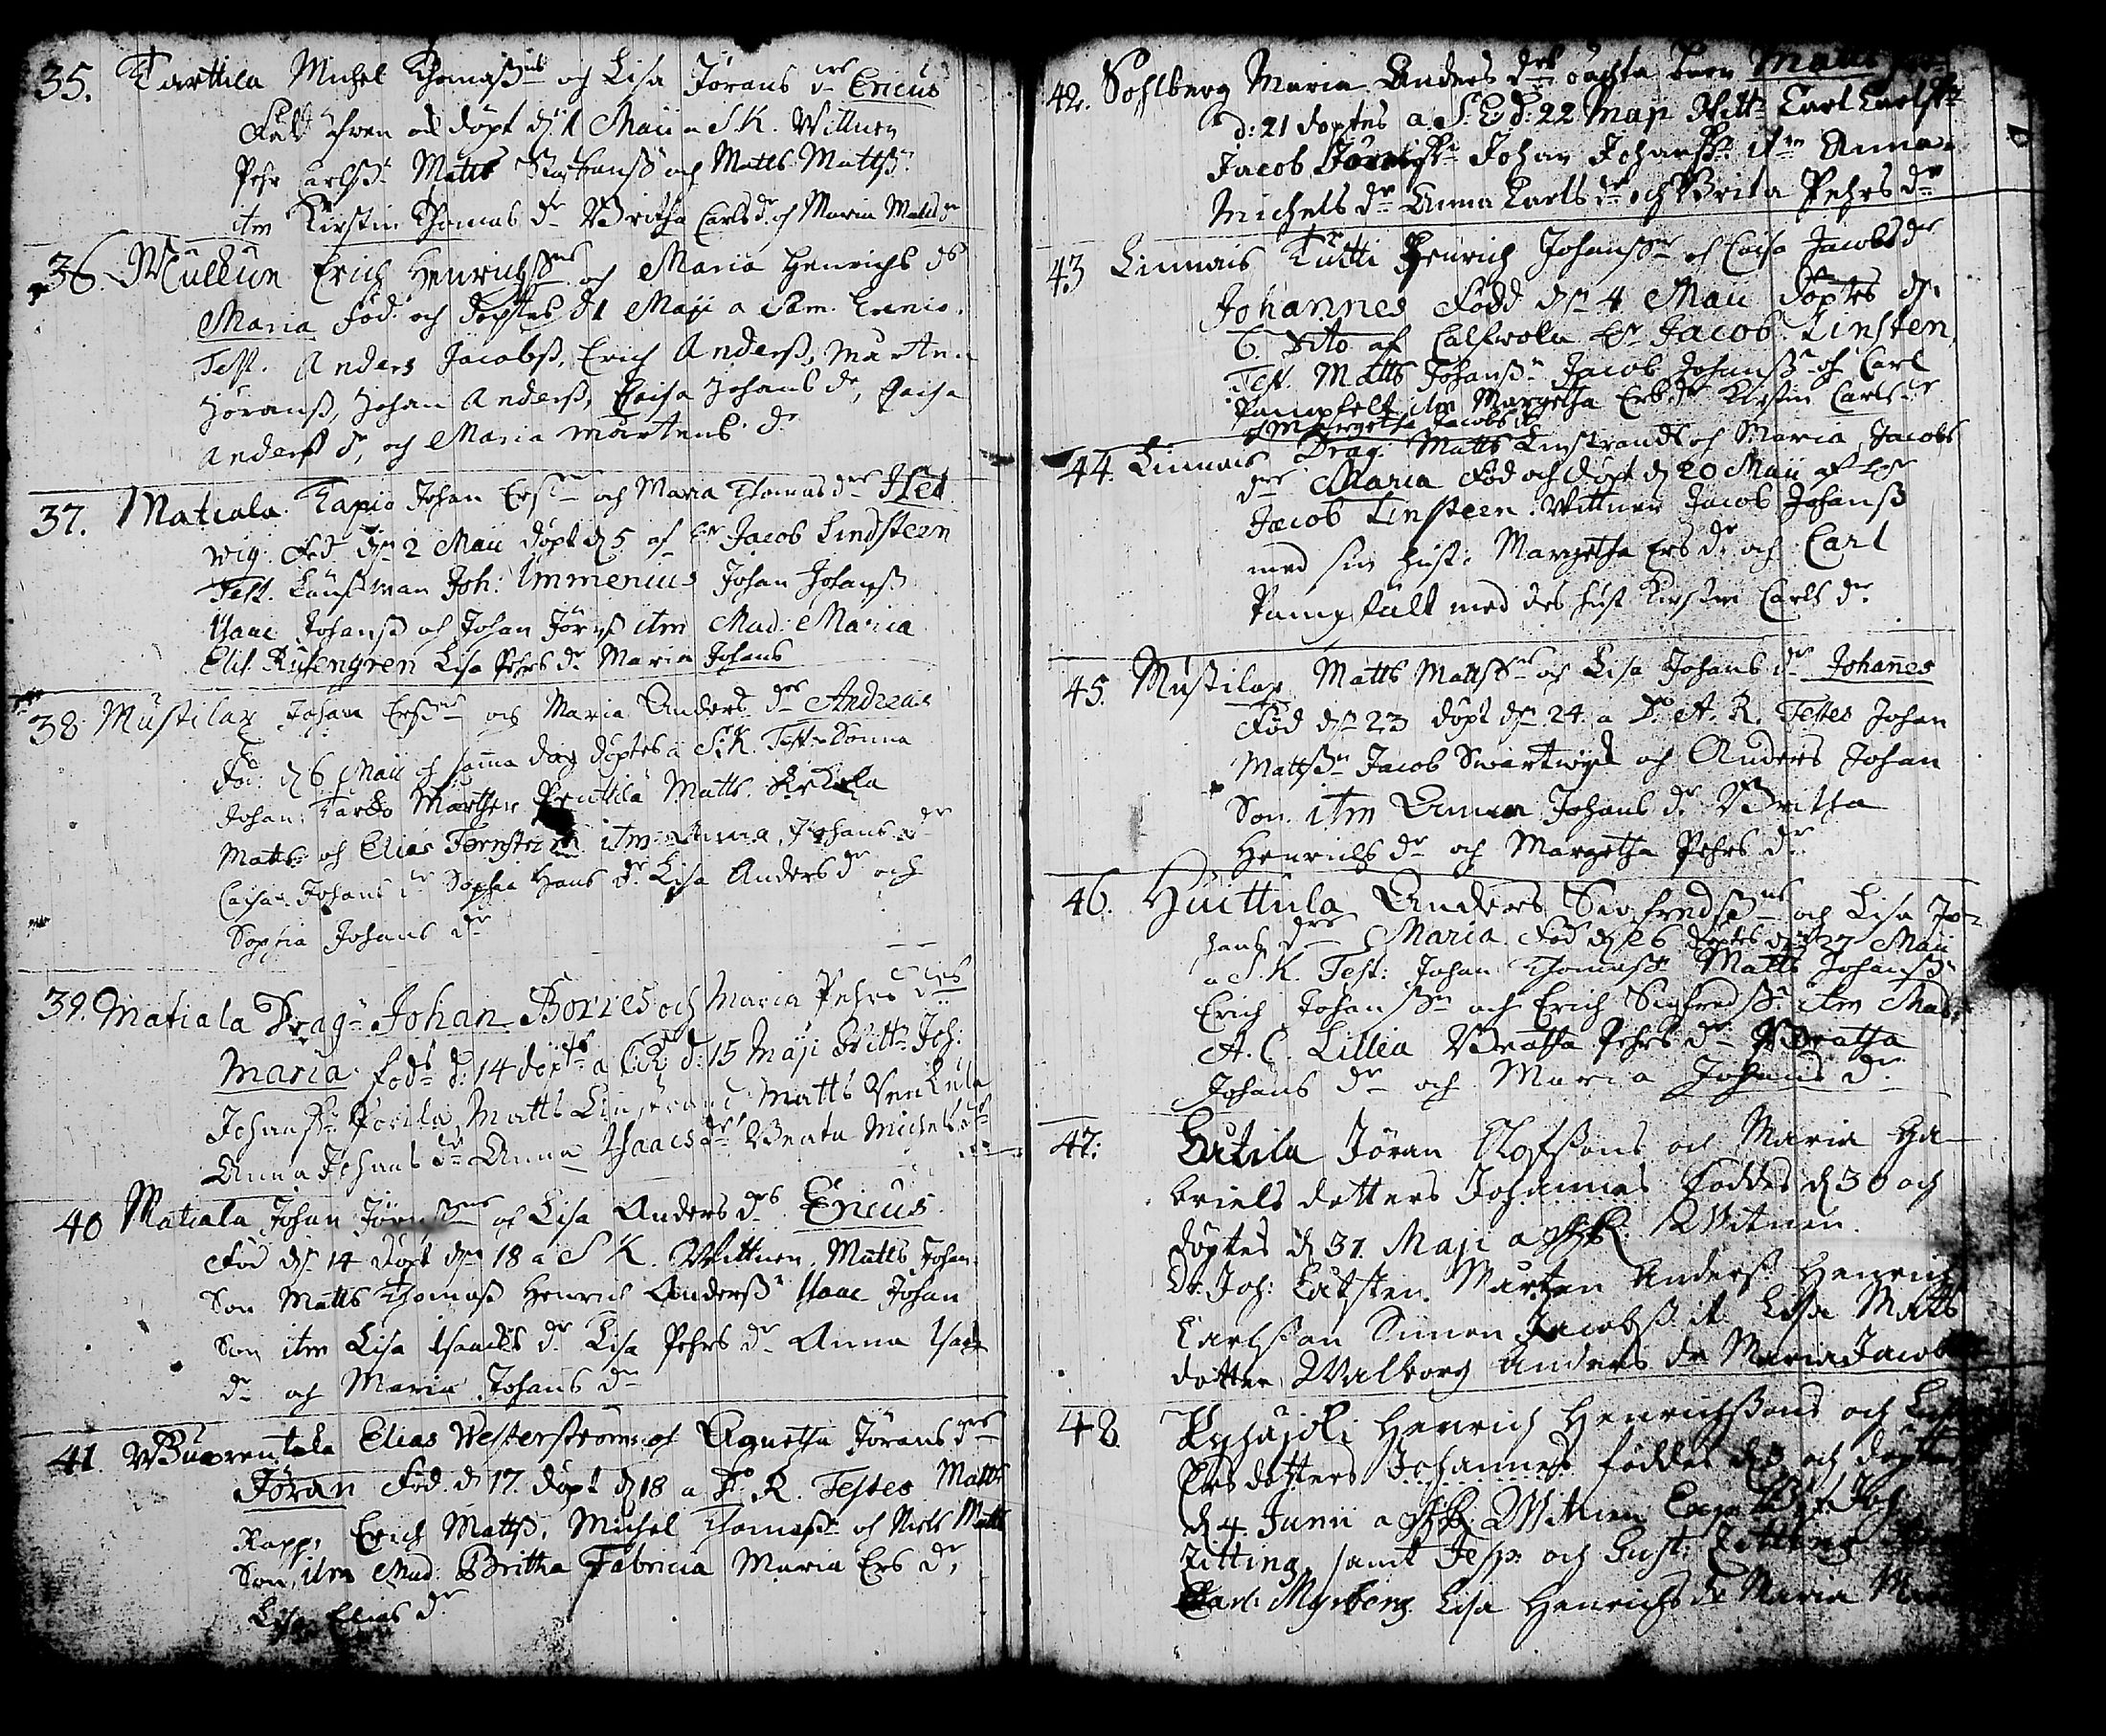 35. Karttila Michel Thomaßns och Lisa Jörans drs Ericus
Född och döpt d. 1 Maii a S.K. Wittnen
Pehr Carlß. Matts Staffansß och Matts Mattß.
itm Kirstin Thomas dr Britha Carls dr och Maria Matts dr
36. Mullun Erich Henrichßns och Maria Henrichs drs
Maria Föd och döptes d 1 Maji a Com.
Test. Anders Jacobß, Erich Anderß, Mårten
Jöranß, Johan Anderß, Caisa Johans dr, Caisa
Anders dr, och Maria Mårtens dr
37. Matiala Kapio Johan Ersßns och Maria Thomas drs Hed
wig. Föd dn 2 Maii döpt d 5 af Hr Jacob Lindsteen
Test. Länsman Joh: Ummenius Johan Johanß
Isaac Johanß och Johan Jörnß itm Mad: Maria
Elis. Rusengren Lisa Pehrs dr Maria Johans
38. Mustilax Johan Ersßns och Maria Anders drs Andreas
Föd. d 6 Maii och samma dag döptes a S.K. Test.
Johan Marthen Penttilä Matts
Matts och Elias Fernström itm Anna Johans dr
Caisa Johans dr Sophia Hans dr Lisa Anders dr och
Sophia Johans dr
39. Matiala Drag. Johan Borres och Maria Pehrs drs
Maria födn d: 14 döpts a d: 15 Maji Wittn Joh:
Johanßn Matts Linstrand Matts
Anna Johans dr Anna Isaacs dr Beata Michels dr
40 Matiala Johan Jörnßns och Lisa Anders drs Ericus
Föd dn 14 Döpt dn 18 a S K. Wittnen. Matts Johan
Son Matts Thomaß Henrich Anderß Isaac Johan
Son itm Lisa Isaacks dr Lisa Pehrs dr Anna Isacs
dr och Maria Johans dr
41. Buorentaka Elias Westerström och Agnetha Jörans drs
Jöran Föd. d 17. döpt d 18 a R. Testes Matts
Rapp, Erich Mattß, Michel Thomaßn och Niels Matts
Son, itm Mad: Britha Fabricia Maria Ers dr,
Lisa Elias dr
42. Sohlberg Maria Anders drs oächta barn Matts
d: 21 döptes a d: 22 Maji Witt: Carl Carlßn
Jacob Johan Johanßn itm Anna
Michels dr Anna Carls dr och Brita Pehrs dr
43 Linnais Kutti Henrich Johansßns och Caisa Jacobs drs
Johannes Född dn 4 Maii döptes d.
6 Dito af Hr Jacob Linsten,
Test. Matts Johanß Jacob Johansß och Carl
Pampfelt itm Margetha Ers dr Kirstin Carls dr
och Margetha Jacobs dr
44. Linnais Drag. Matts Linstrands och Maria Jacobs
drs Maria Föd och döpt d 20 Maii af Hr
Jacob Linsteen. Wittnen Jacob Johanß
med sin hust. Margetha Ers dr och Carl
Pampfält med des hust Kirstin Carls dr
45. Mustilax Matts Mattßns och Lisa Johans drs Johanes
Föd dn 23 döpt dn 24 a A. R. Testes Johan
Mattßn Jacob Swartwijk och Anders Johan
Son. itm Anna Johans dr Britha
Henrichs dr och Margetha Pehrs dr
46. Huittula Anders Sigfredßns och Lisa Jo-
hans drs Maria. Föd d 26 Döptes d 27 Maii
a S.K. Test: Johan Thomasß Matts Johanß
Erich Johanßn och Erich Sigfredßn itm Mad:
A. C. Lillia Beatha Pehrs dr Beatha
Johans dr och Maria Johans dr
47: Jöran Olofssons och Maria Ga-
briels dotters Johannes Föddes d 30 och
döptes d 31. Maji a Witnen.
Dr. Joh: Mårten Anderß Henrich
Carlsson Simon Jacobß it Lisa Matts
dotter Walborg Anders dr Maria Jacobs
48. Henrich Henrichssons och Lisa
Ers dotters Johannes föddes d 3 och döptes
d 4. Junii a Witnen
Zitting, samt Jesp: och Gust: Zitting
Carl Myrberg Lisa Henrichs dr Maria